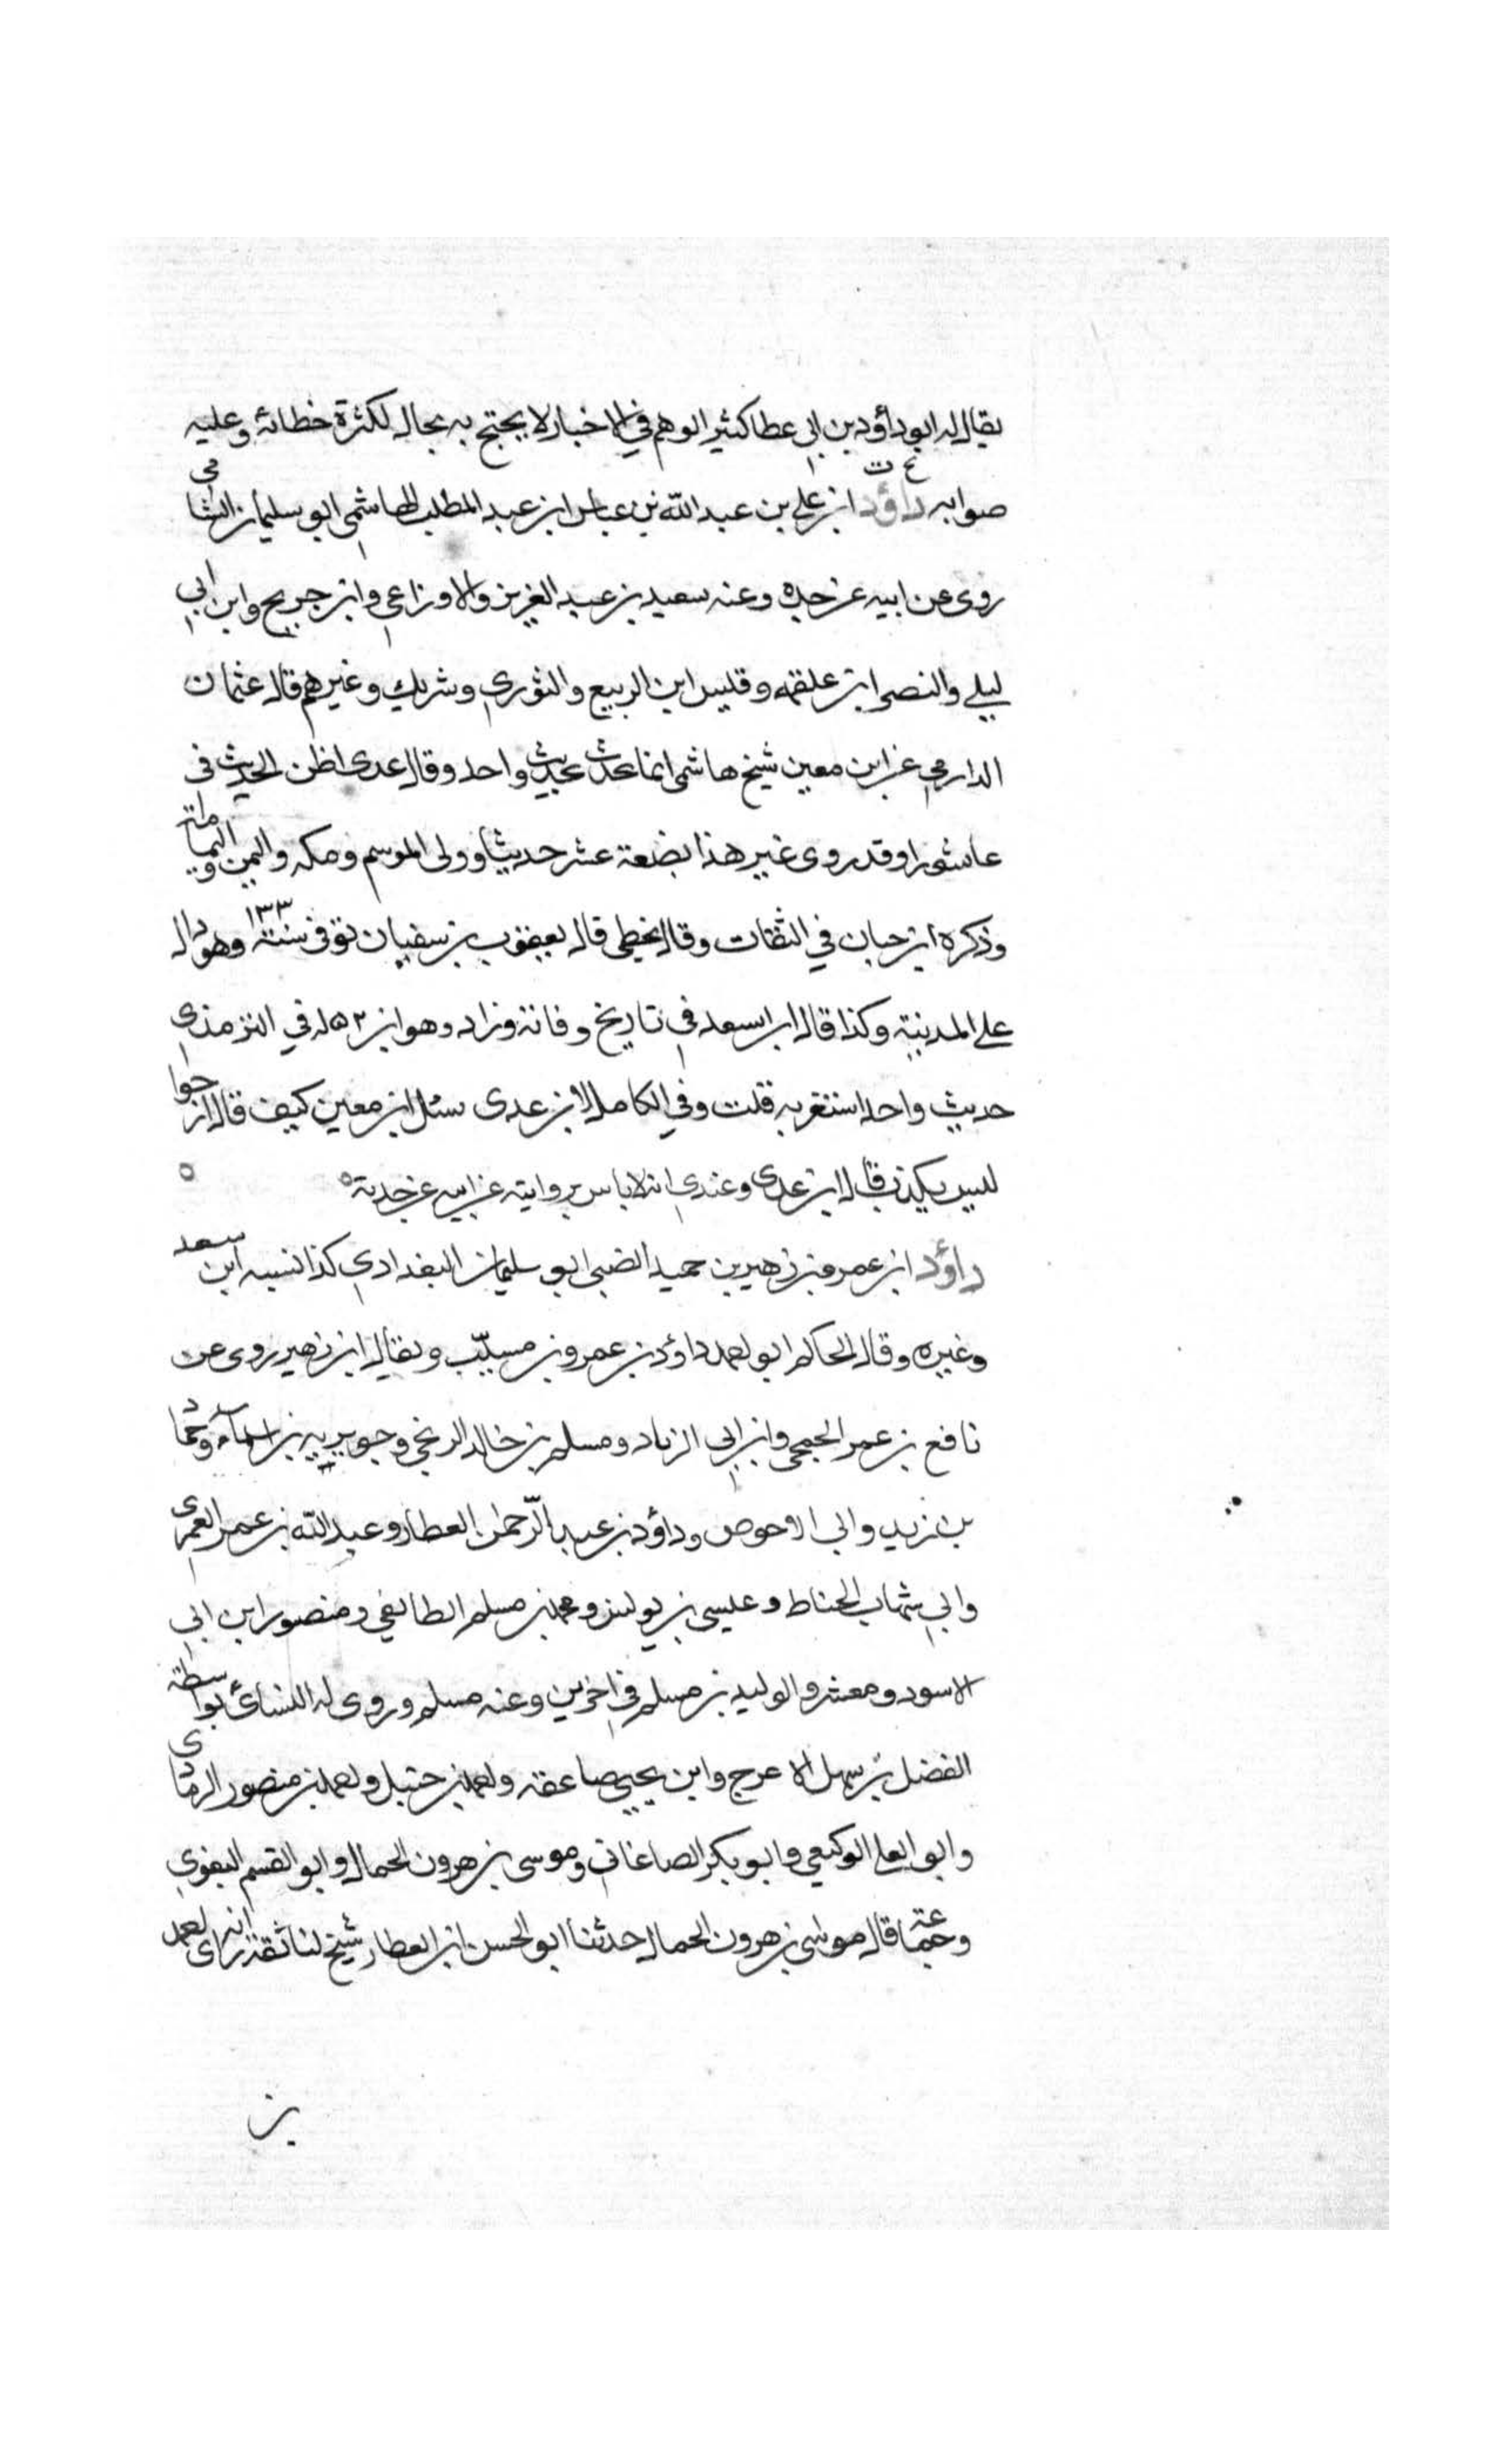 يقال له ابو داؤد بن ابي عطا كثير الوهم في الاخبار لا يحتج به بحال لكثرة خطائه وغلبه
صوابه داؤد ابن علي بن عبد الله بن عباس ابن عبد المطلب الهاشمي ابو سليمان الشامي
روى عن ابيه عن جده وعنه سعيد بن عبد العزيز والاوزاعي وابن جريح وابن ابي
ليلے والنصر ابن علقمه وقيس ابن الربيع والثوري وشريك وغيرهم قال عثمان
الدارمي عن ابن معين شيخ هاشمى انما يحدث بحديث واحد وقال عدى اظن الحديث في
عاشورا وقد روى غير هذا بضعة عشر حديثا وولى الموسم ومكه واليمن واليمامة
وذكره ابن حبان في الثقات وقال يخطى قال يعقوب بن سفيان توفى سنة ١٣٣ وهو وال
علے المدينة وكذا قال ابن سعد في تاريخ وفاته وزاد وهو ابن ٥٢ له في الترمذى
حديث واحد استغربه قلت وفي الكامل لابن عدى سئل ابن معين كيف قال ارجوا
ليس يكذب قال ابن عدى وعندى انه لا باس بروايته عن ابيه عن جده ٥
داؤد ابن عمرو بن زهير بن حميد الضبى ابو سليمان البغدادي كذا نسبه ابن سعد
وغيره وقال الحاكم ابو احمد داؤد بن عمرو بن مسيّب ويقال ابن زهير روى عن
نافع بن عمر الجمحى وابن ابي الزناد ومسلم بن خالد الزنجي وجويريه بن اسمآء وحماد
بن زيد وابي الاحوص وداؤد بن عبد الرّحمن العطار وعبد الله بن عمر العمرى
وابي شهاب الحناط وعيسى بن يونس ومحمد بن مسلم الطائفي ومنصور ابن ابي
الاسود ومعشر والوليد بن مسلم في اخرين وعنه مسلم وروى له النسائ بواسطة
الفضل بن سهل الاعرج وابن يحيى صاعقه واحمد بن حنبل واحمد بن منصور الرمادى
وابو العلى الوكيعي وابو بكر الصاغاني وموسى بن هرون الحمال وابو القسم البغوي
وجماعة قال موسى بن هرون الحمال حدثنا ابو الحسن ابن العطار شيخ لنا ثقة انه راى احمد
بن